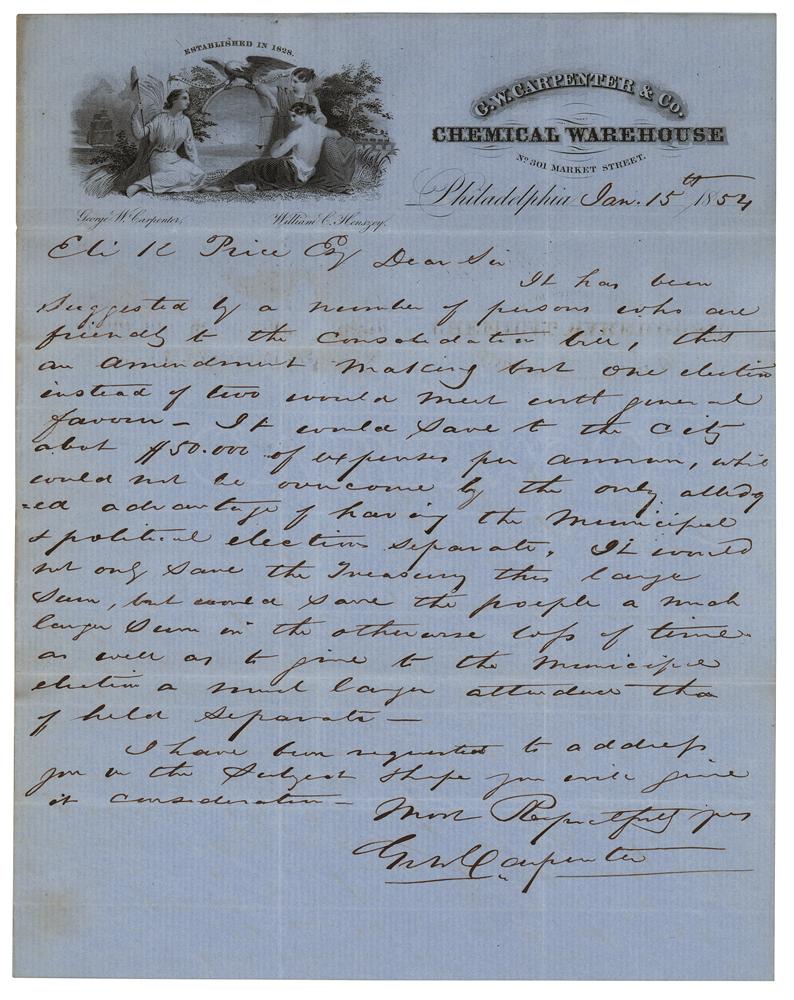 ESTABLISHED IN 1828.
G. W. CARPENTER & Co.
CHEMICAL WAREHOUSE
No. 301 MARKET STREET.
Philadelphia Jan. 15th 1854
George W. Carpenter, William C. Henszey.
Eli K Price Esq Dear Sir
It has been
suggested by a number of persons who are
friendly to the consolidation bill, that
an amendment making but one election
instead of two would meet with general
favour – It would save to the City
about $50.000 of expenses per annum, which
could not be overcome by the only alledg
=ed advantage of having the Municipal
& political elections separate. It would
not only save the Treasury this large
sum, but would save the people a much
larger sum in the otherwise loss of time
as well as to give to the Municipal
election a much larger attendance than
if held separate –
I have been requested to address
you on the subject & hope you will give
it consideration –
Most Respectfully yrs
Geo W Carpenter